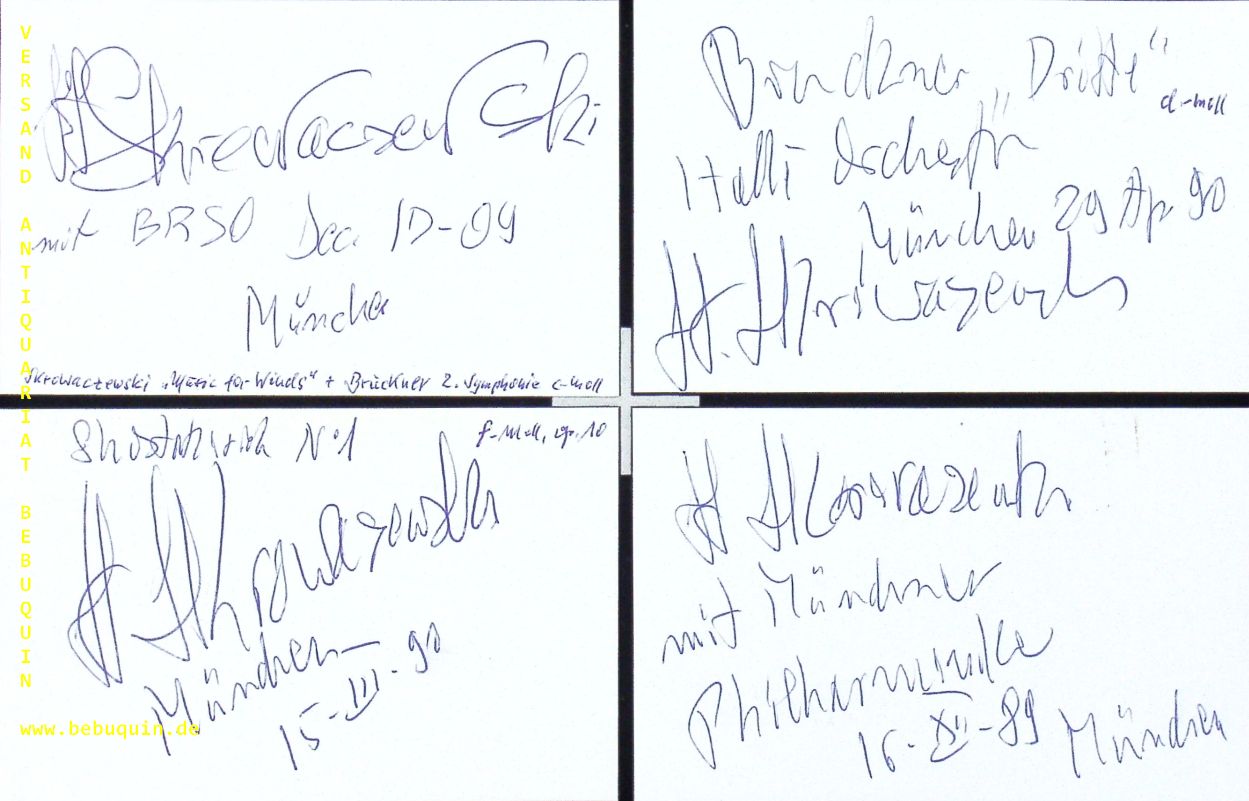 VERSAND ANTIQUARIAT BEBUQUIN
www.bebuquin.de
Skrowaczewski
mit BRSO Dec. 10-09
München
Skrowaczewski „Music for Winds“ + Bruckner 2. Symphonie c-moll
Bruckner „Dritte“
d-moll
Hallé Orchestra
München 29 Ap 90
St. Skrowaczewski
Shostakovich No 1
f-moll, op. 10
St. Skrowaczewski
München
15-III-90
St Skrowaczewski
mit Münchner
Philharmoniker
16-XII-89 München